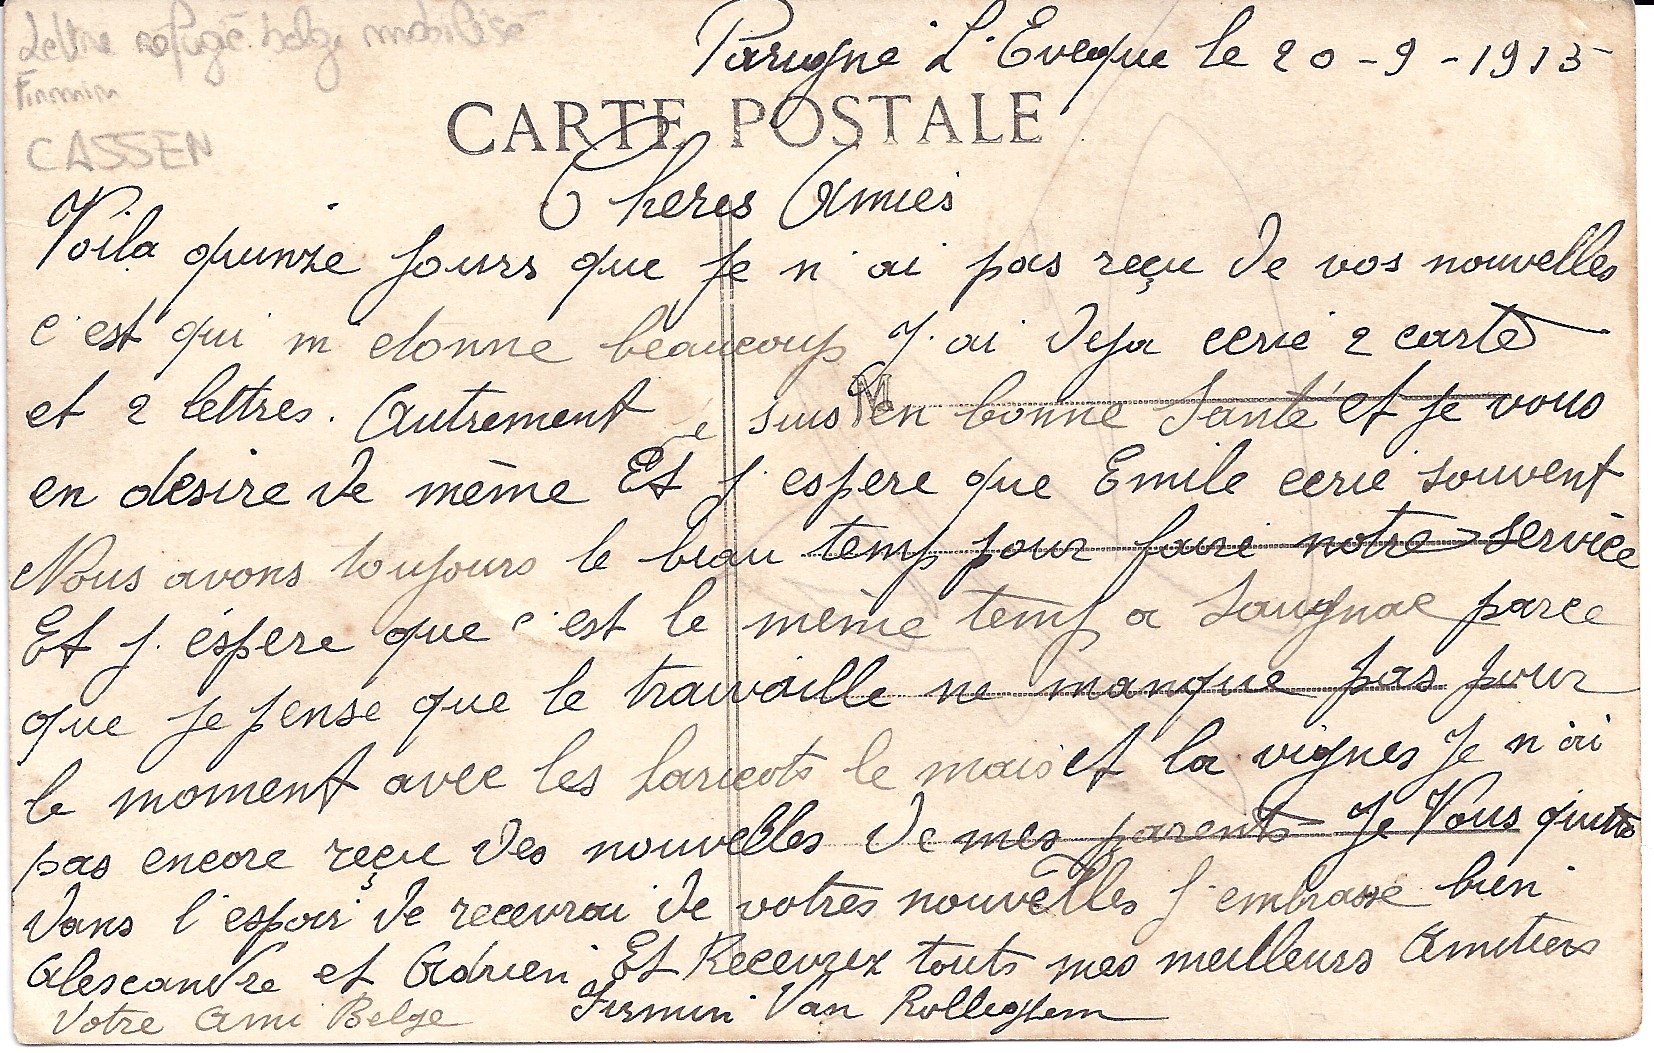 Lettre refugé belge mobilisé
Firmin
CASSEN
Parigne L'Eveque le 20-9-1915
CARTE POSTALE
Cheres Amies
Voila quinze Jours que Je n'ai pas reçu de vos nouvelles
c'est qui m donne beaucoup J'ai deja ecrie 2 carte
et 2 lettres. Autrement je suis en bonne Santé et je vous
M
en desire de même Et j'espere que Emile ecrie souvent
Nous avons toujours le beau temp pour faire notre service
Et j'éspere que c'est le même temp a Saugnac parce
que je pense que le travaille ne manque pas pour
le moment avec les haricots le mais et la vignes Je n'ai
pas encore reçu des nouvelles de mes parents Je Vous quitte
dans l'espoir de recevrai de votres nouvelles J'embrasse bien
Alescandre et Adrien Et Recevrez touts mes meilleurs Amitiers
Votre Ami Belge Firmin Van Rolleghem